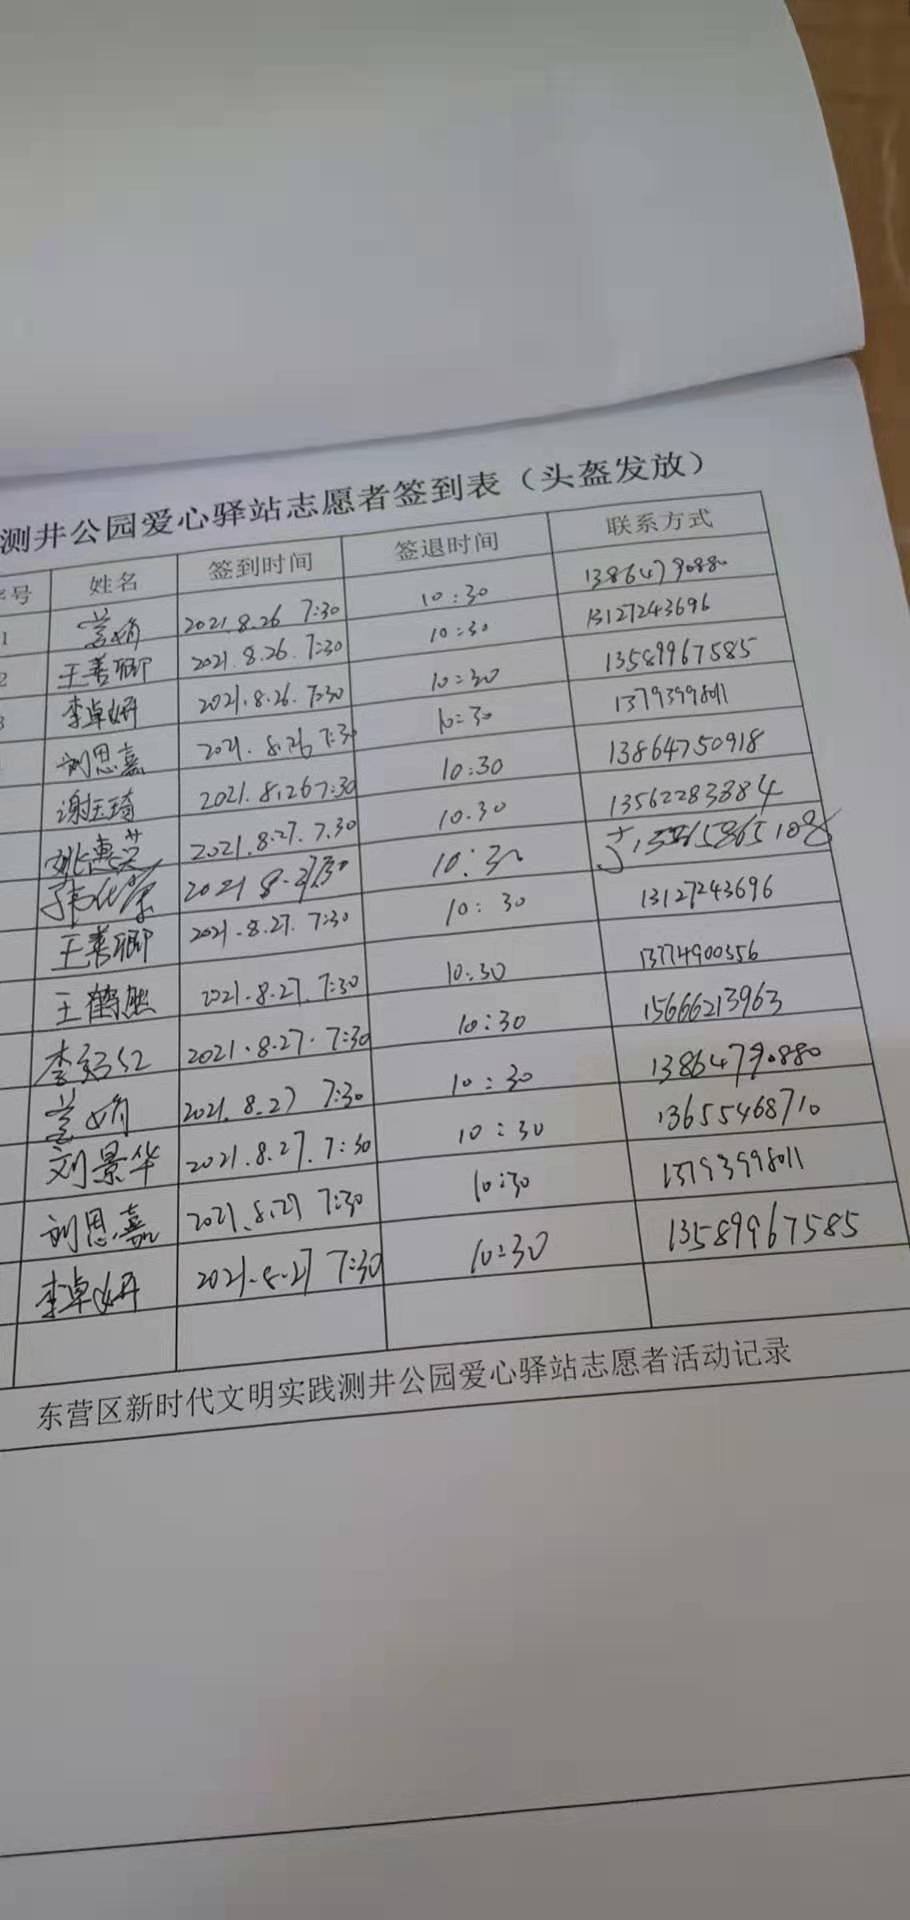 测井公园爱心驿站志愿者签到表（头盔发放）
序号 姓名 签到时间 签退时间 联系方式
1 2021.8.26 7:30 10:30 13864790880
2 王善卿 2021.8.26. 7:30 10:30 13127243696
3 李卓妍 2021.8.26. 7:30 10:30 13589967585
刘思嘉 2021.8.26 7:30 10:30 13793998011
谢玉琦 2021.8.26 7:30 10:30 13864750918
姚惠芝 2021.8.27. 7.30 10.30 13562283384
2021 8.27 7:30 10:30
王善卿 2021.8.27. 7:30 10:30 13127243696
王鹤然 2021.8.27. 7:30 10:30 13774900356
2021.8.27. 7:30 10:30 15666213963
2021.8.27 7:30 10:30 13864790880
刘景华 2021.8.27. 7:30 10:30 13655468710
刘思嘉 2021.8.27 7:30 10:30 13793998011
李卓妍 2021.8.27 7:30 10:30 13589967585
东营区新时代文明实践测井公园爱心驿站志愿者活动记录